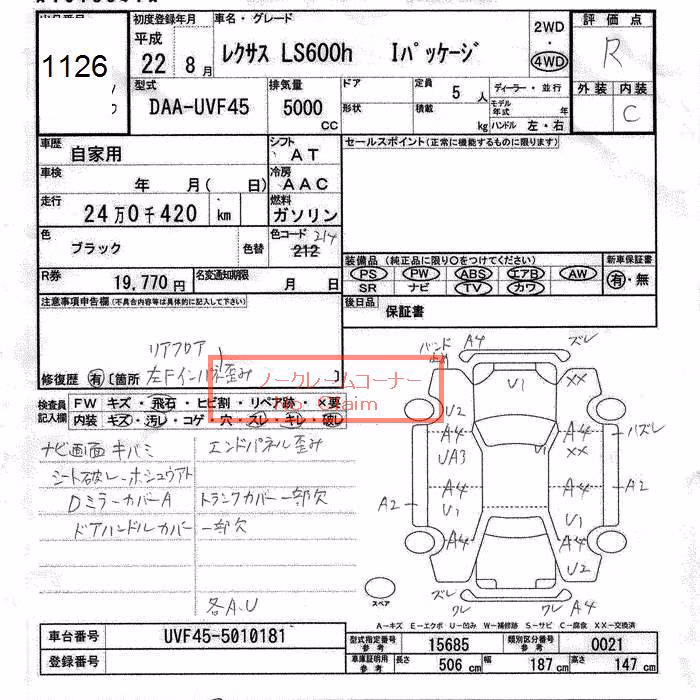 1126
初度登録年月
平成
22 8月
車名・グレード
レクサス LS600h Iパッケージ
2WD
4WD
評価点
R
外装 内装
C
型式
DAA-UVF45
排気量
5000
CC
ドア
形状
定員
5人
積載
kg
ディーラー・並行
モデル年式 年
ハンドル 左・右
車歴
自家用
シフト
AT
車検
年 月( 日)
冷房
AAC
走行
24万0千420 km
燃料
ガソリン
色
ブラック
色替
色コード
214
212
R券
19,770円
名変通知期限
月 日
セールスポイント(正常に機能するものに限ります)
装備品(純正品に限り〇をつけてください)
PS PW ABS エアB AW
SR ナビ TV カワ
新車保証書
有・無
後日品
保証書
注意事項申告欄(不具合内容等は具体的に記入して下さい)
リアフロア
修復歴 有 〔箇所 左Fインパネ歪み 〕
ノークレームコーナー
No Claim
検査員記入欄
FW キズ・飛石・ヒビ割・リペア跡・×要
内装 キズ・汚レ・コゲ・穴・スレ・キレ・破レ
ナビ画面キバミ
エンドパネル歪み
シート破レ・ホシュウアト
DミラーカバーA
トランクカバー一部欠
ドアハンドルカバー一部欠
各A.U
バンド
A4
ズレ
U1
XX
U2
A4
A4
ハズレ
UA3
U1
XX
A2
A4
A4
A2
U1
U1
A4
A4
U2
ズレ
ワレ
ワレ
A4
スペア
A-キズ E-エクボ U-凹み W-補修跡 S-サビ C-腐食 XX-交換済
車台番号
UVF45-5010181
登録番号
型式指定番号
参考
15685
類別区分番号
参考
0021
車庫証明用
参考
長さ 506cm 幅 187cm 高さ 147cm